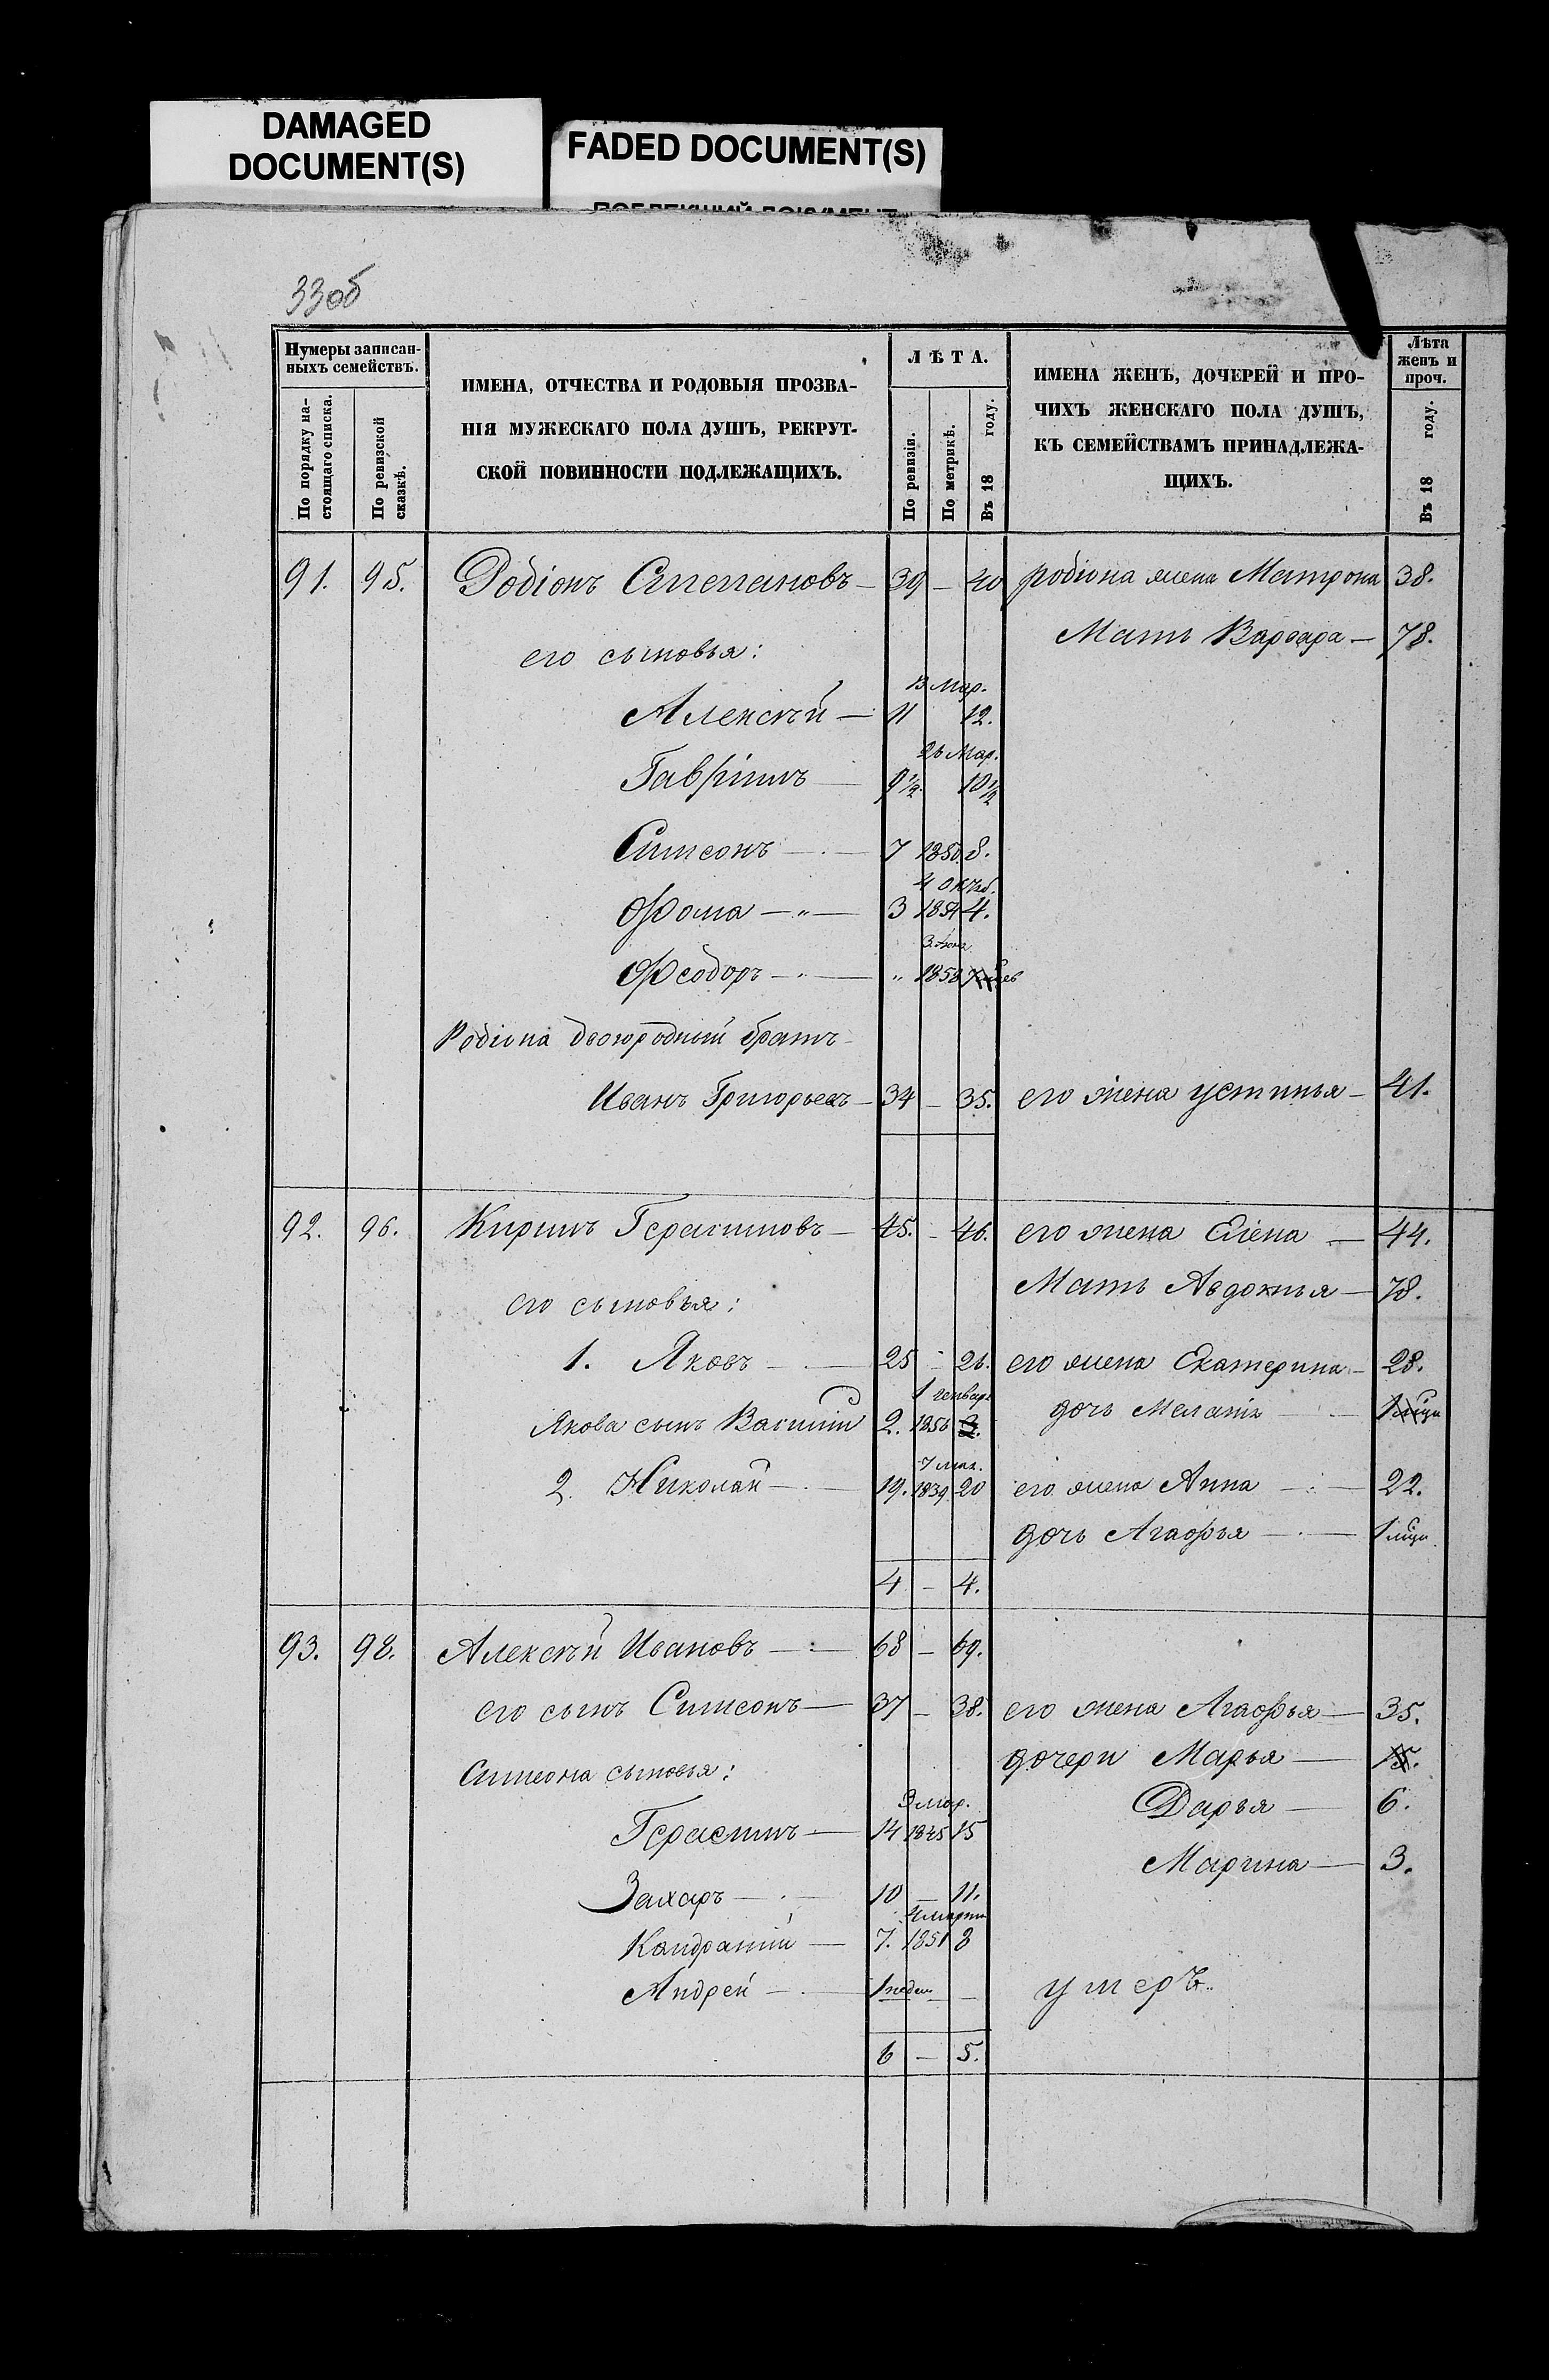 DAMAGED
DOCUMENT(S)
FADED DOCUMENT(S)
33об
Нумеры записан-
ныхъ семействъ.
По порядку на-
стоящаго списка.
По ревизской
сказкѣ.
ИМЕНА, ОТЧЕСТВА И РОДОВЫЯ ПРОЗВА-
НІЯ МУЖЕСКАГО ПОЛА ДУШЪ, РЕКРУТ-
СКОЙ ПОВИННОСТИ ПОДЛЕЖАЩИХЪ.
ЛѢТА.
По ревизіи.
По метрикѣ.
Въ 18 году.
ИМЕНА ЖЕНЪ, ДОЧЕРЕЙ И ПРО-
ЧИХЪ ЖЕНСКАГО ПОЛА ДУШЪ,
КЪ СЕМЕЙСТВАМЪ ПРИНАДЛЕЖА-
ЩИХЪ.
Лѣта
женъ и
проч.
Въ 18 году.
91. 95. Родіонъ Степановъ — 39 — 40 родіона жена Матрона 38.
Мать Варвара — 78.
его сыновья:
13 Мар.
Алексѣй — 11 12.
26 Мар.
Гавріилъ — 9 1/2 10 1/2
Симеонъ — 7 1850 8.
4 Октяб.
Ѳома — " — 3 1854 4.
Ѳеодоръ — " — " 1858
Родіона двоюродный братъ
Иванъ Григорьевъ — 34 — 35. его жена Устинья — 41.
92. 96. Кирилъ Герасимовъ — 45. — 46. его жена Елена — 44.
Мать Авдокья — 78.
его сыновья:
1. Яковъ — 25 — 26. его жена Екатерина — 28.
1 генваря
Якова сынъ Василій 2. 1856 3. дочь Меланья —
7 мая.
2. Николай — 19. 1839 20 его жена Анна — 22.
дочь Агафья — 1 мѣся.
4 — 4.
93. 98. Алексѣй Ивановъ — 68 — 69.
его сынъ Симеонъ — 37 — 38. его жена Агафья — 35.
дочери Марья — 15.
Симеона сыновья:
3 мар. Дарья — 6.
Герасимъ — 14 1845 15
Марина — 3.
Захаръ — 10 — 11.
4 марта
Кандратій — 7. 1851 8
Андрей — 1 недел — умеръ.
6 — 5.